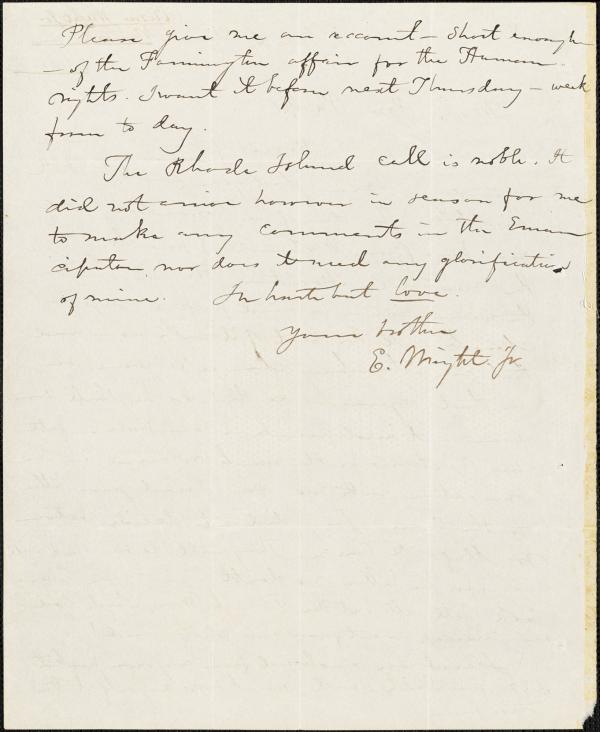 Please give me an account – short enough
– of the Farmington affair for the Human
rights. I want it before next Thursday – week
from to day.
The Rhode Island call is noble. It
did not arrive however in season for me
to make any comments in the Eman
cipator, nor does it need any glorification
of mine. In haste but love.
Your brother
E. Wright. Jr.